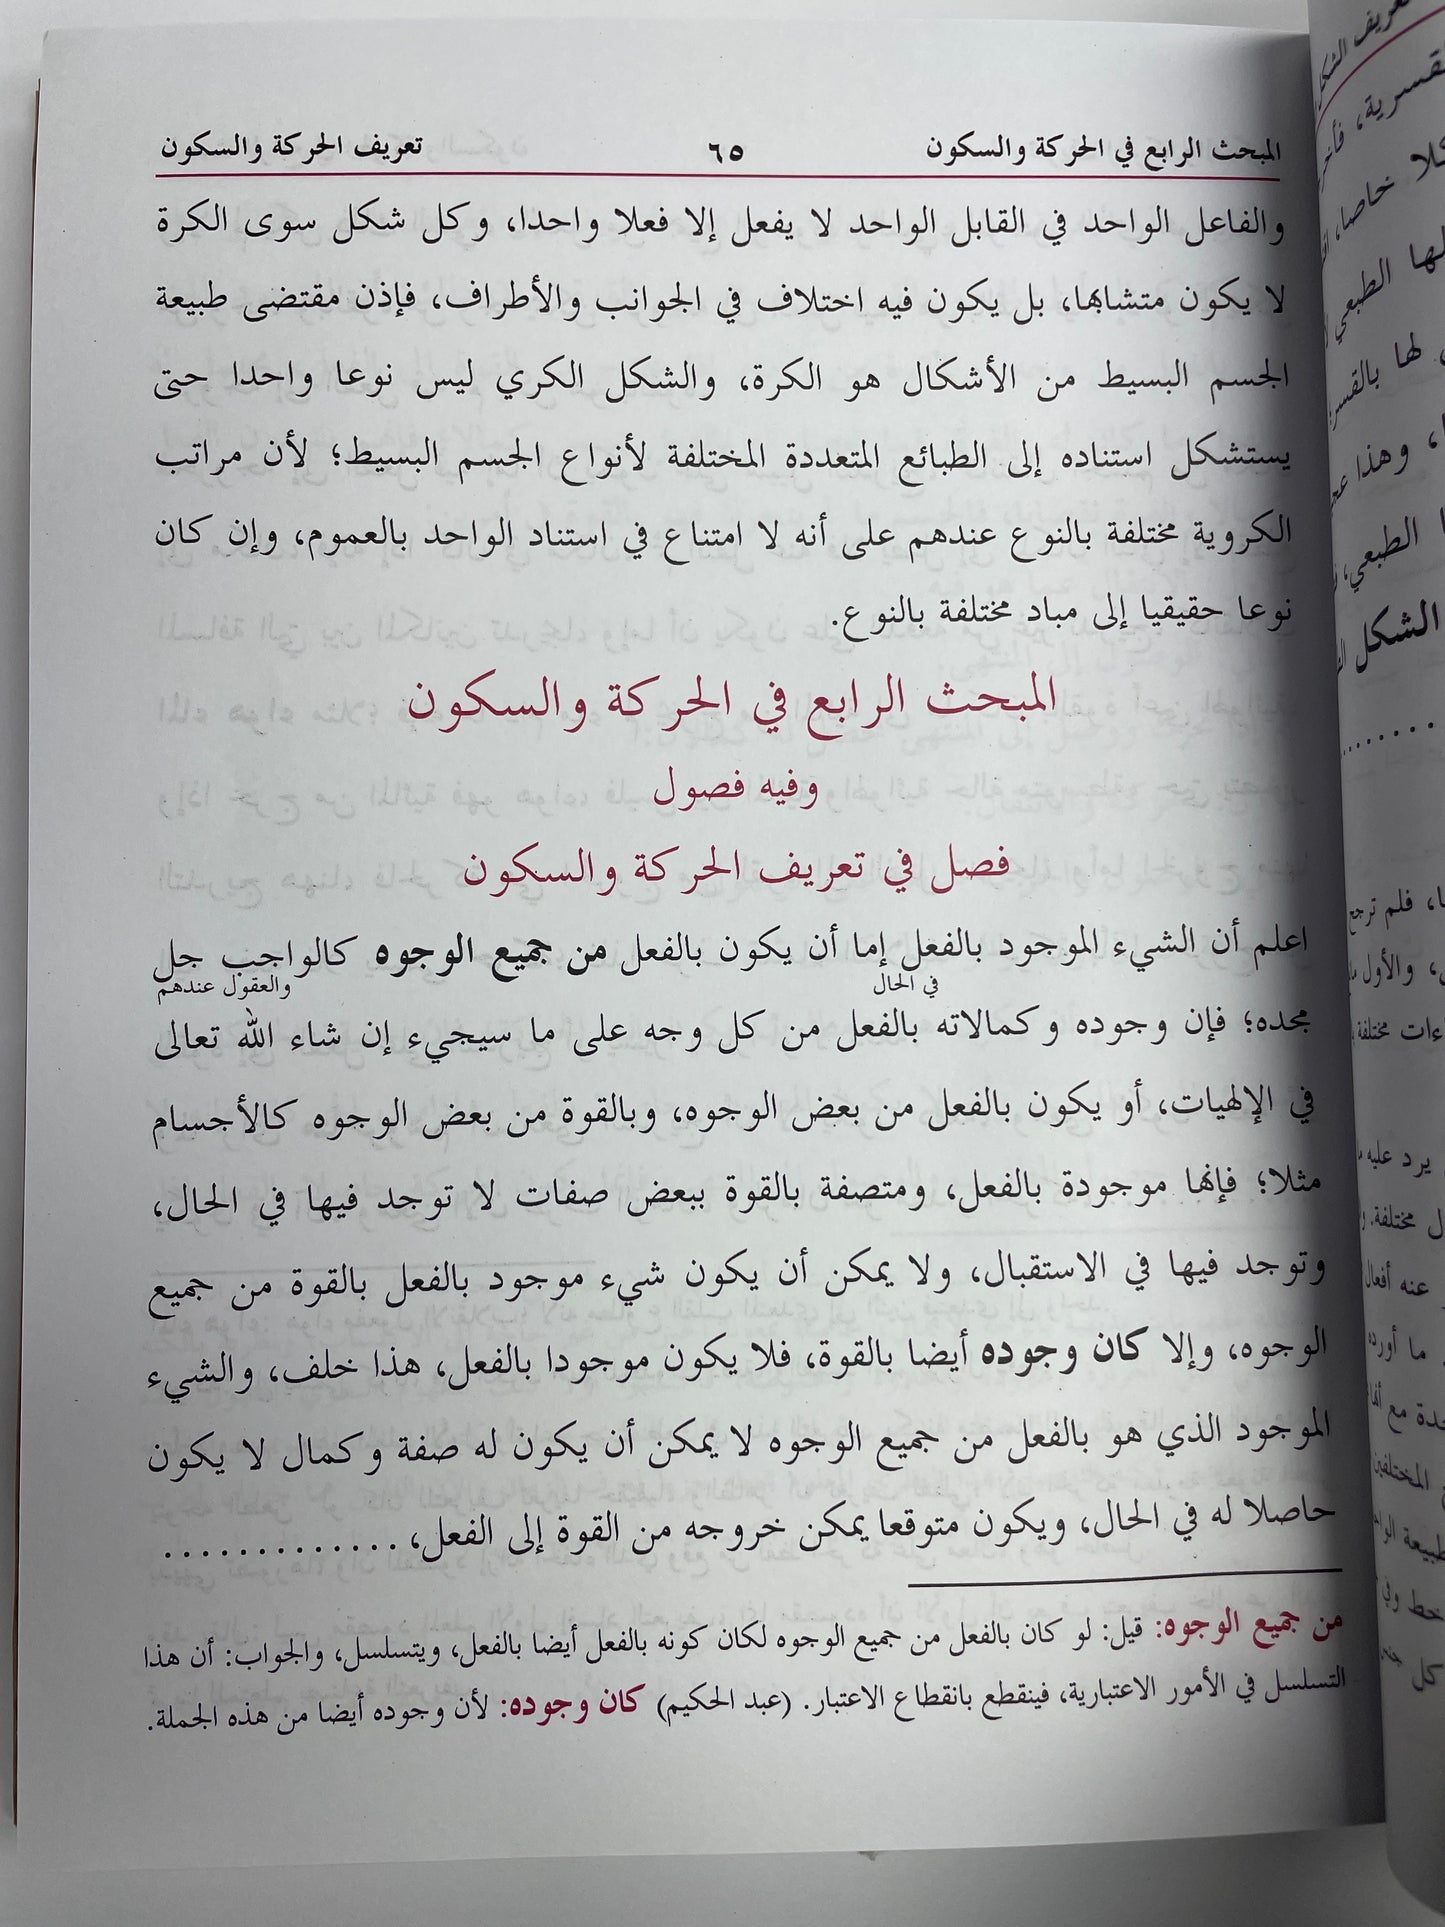 المبحث الرابع في الحركة والسكون ٦٥ تعريف الحركة والسكون
والفاعل الواحد في القابل الواحد لا يفعل إلا فعلا واحدا، وكل شكل سوى الكرة
لا يكون متشابها، بل يكون فيه اختلاف في الجوانب والأطراف، فإذن مقتضى طبيعة
الجسم البسيط من الأشكال هو الكرة، والشكل الكري ليس نوعا واحدا حتى
يستشكل استناده إلى الطبائع المتعددة المختلفة لأنواع الجسم البسيط؛ لأن مراتب
الكروية مختلفة بالنوع عندهم على أنه لا امتناع في استناد الواحد بالعموم، وإن كان
نوعا حقيقيا إلى مباد مختلفة بالنوع.
المبحث الرابع في الحركة والسكون
وفيه فصول
فصل في تعريف الحركة والسكون
اعلم أن الشيء الموجود بالفعل إما أن يكون بالفعل من جميع الوجوه كالواجب جل
في الحال والعقول عندهم
مجده؛ فإن وجوده وكمالاته بالفعل من كل وجه على ما سيجيء إن شاء الله تعالى
في الإلهيات، أو يكون بالفعل من بعض الوجوه، وبالقوة من بعض الوجوه كالأجسام
مثلا؛ فإنها موجودة بالفعل، ومتصفة بالقوة ببعض صفات لا توجد فيها في الحال،
وتوجد فيها في الاستقبال، ولا يمكن أن يكون شيء موجود بالفعل بالقوة من جميع
الوجوه، وإلا كان وجوده أيضا بالقوة، فلا يكون موجودا بالفعل، هذا خلف، والشيء
الموجود الذي هو بالفعل من جميع الوجوه لا يمكن أن يكون له صفة وكمال لا يكون
حاصلا له في الحال، ويكون متوقعا يمكن خروجه من القوة إلى الفعل، .............
من جميع الوجوه: قيل: لو كان بالفعل من جميع الوجوه لكان كونه بالفعل أيضا بالفعل، ويتسلسل، والجواب: أن هذا
التسلسل في الأمور الاعتبارية، فينقطع بانقطاع الاعتبار. (عبد الحكيم) كان وجوده: لأن وجوده أيضا من هذه الجملة.